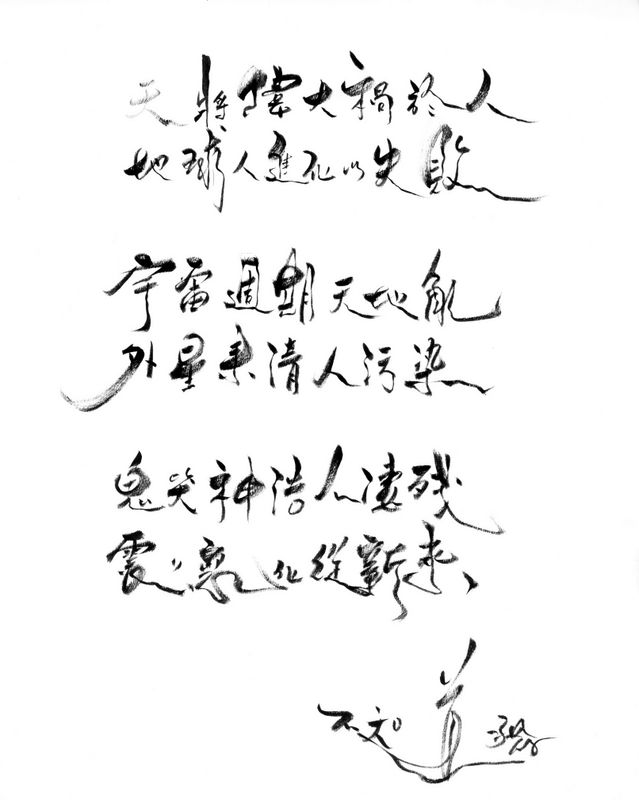 天將偉大禍於人
地球人進化以失敗
宇宙週期天地亂
外星來清人污染
鬼哭神浩人凄殘
震〃亂化從新來
不知道